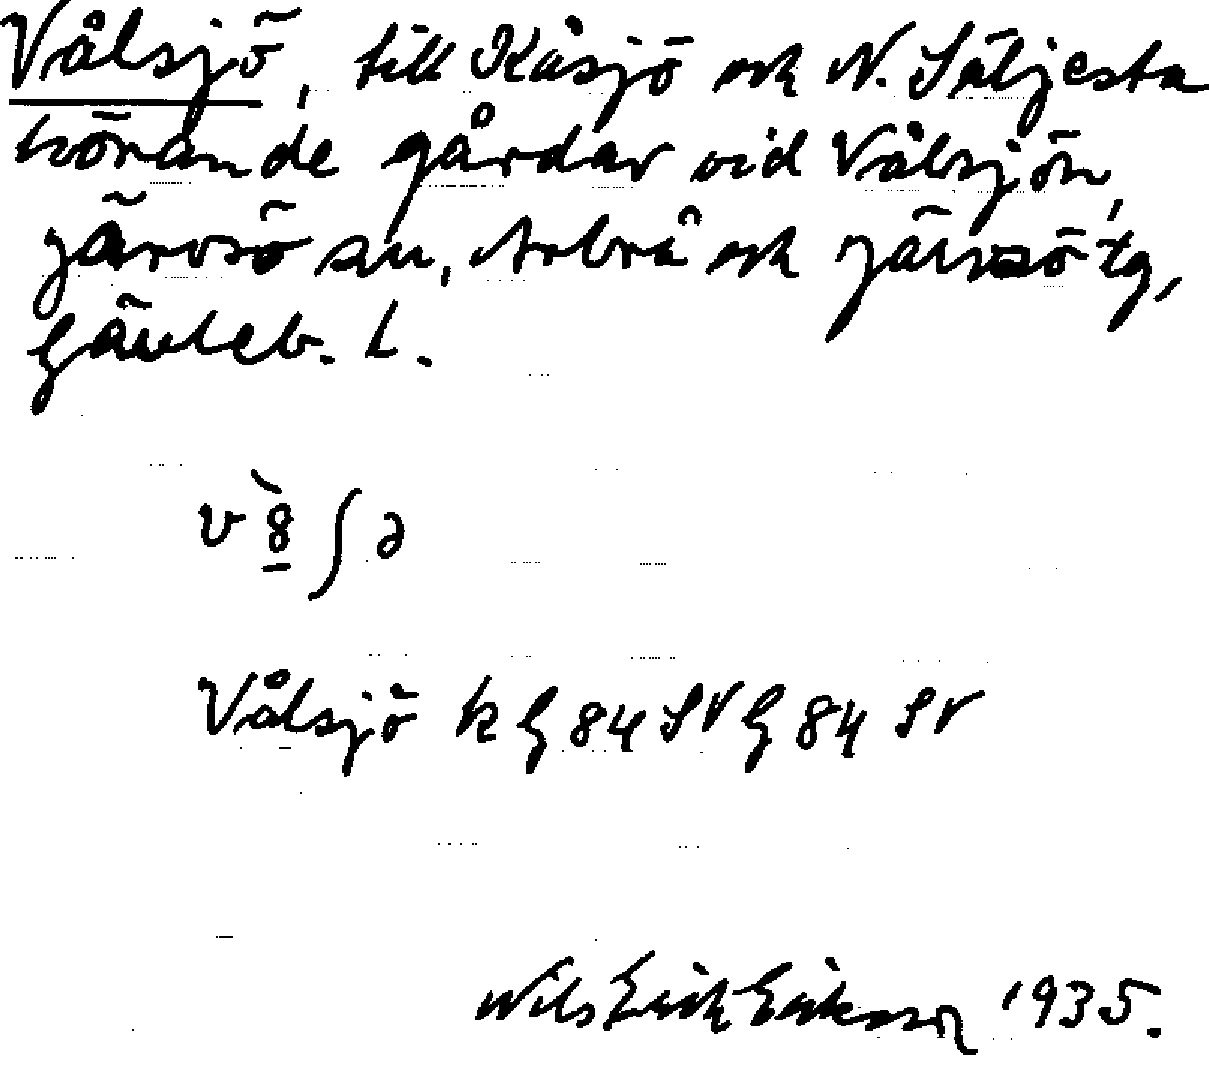 Vålsjö, till Kåsjö och N. Säljesta
hörande gårdar vid Vålsjön,
Järvsö sn, Arbrå och Järvsö tg,
Gävleb. l.
v 8̲̀ ʃ ə
Vålsjö k G 84 SV G 84 SV
Nils Erik Eriksson 1935.